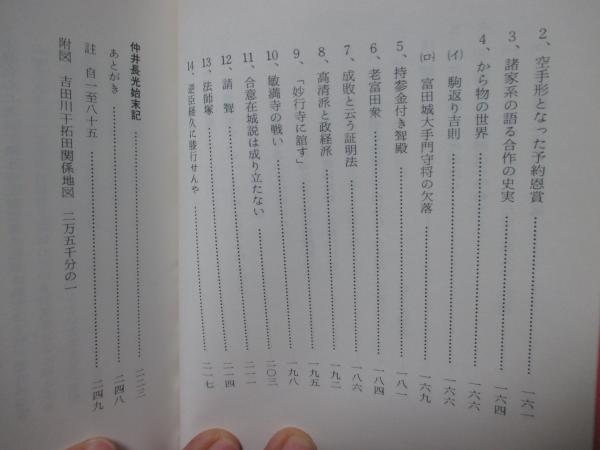 2、空手形となった予約恩賞……一六一
3、諸家系の語る合作の史実……一六四
4、から物の世界……一六六
(イ) 駒返り吉則……一六六
(ロ) 富田城大手門守将の欠落……一六九
5、持参金付き聟殿……一八一
6、老富田衆……一八四
7、成敗と云う証明法……一八六
8、高清派と政経派……一九二
9、「妙行寺に舘す」……一九五
10、敏満寺の戦い……一九八
11、合意在城説は成り立たない……二〇三
12、請聟……二一一
13、法師塚……二一四
14、逆臣経久に膝行せんや……二一七
仲井長光始末記……二二三
あとがき……二四八
註 自一至八十五……二四九
附図 吉田川干拓田関係地図 二万五千分の一